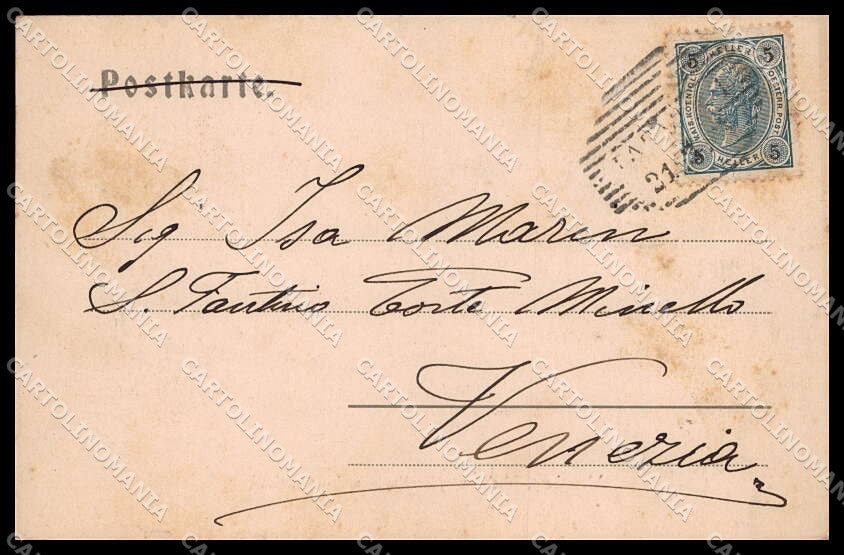 Postkarte.
5 HELLER 5
KAIS. KOENIGL. OESTERR. POST
5 HELLER 5
21
Sig Isa Maren
S. Fantino Corte Minello
Venezia
CARTOLINOMANIA